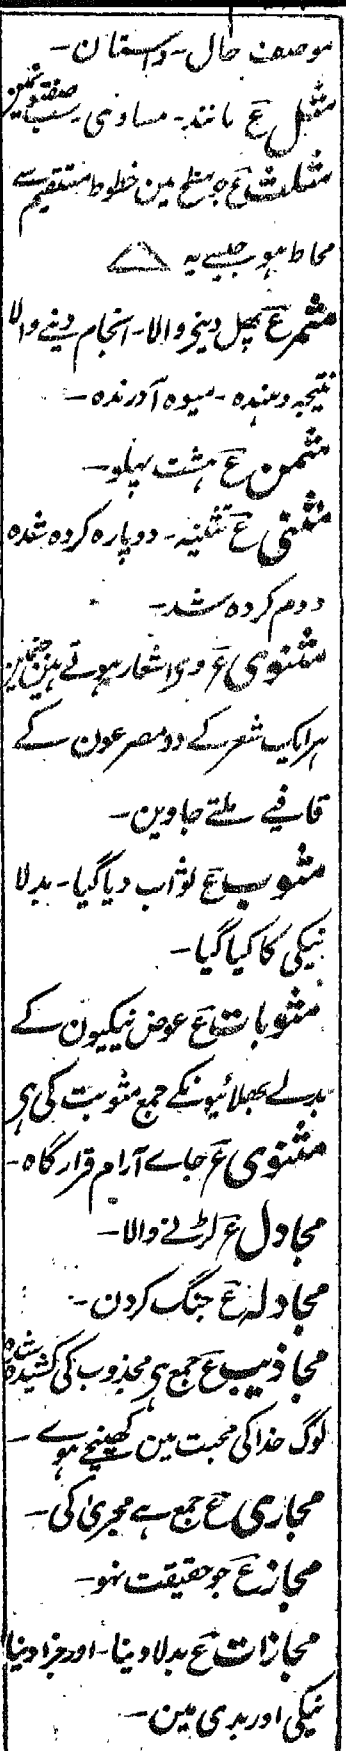 موصف حال۔ داستان۔
مثل ع مانند۔ مساوی۔ سب صفتونمین
مثلث ع جو سطح مین خطوط مستقیم سے
محاط ہو جیسے یہ
مثمر ع پھل دینے والا۔ انجام دینے والا
نتیجہ دہندہ۔ میوہ آورندہ۔
مثمن ع ہشت پہلو۔
مثنی ع تثنیہ۔ دوپارہ کردہ شدہ
دوم کردہ شد۔
مثنوی ع وی اشعار ہوتے ہین جنمین
ہر ایک شعر کے دو مصرعون کے
قافیے ملتے جاوین۔
مثوب ع ثواب دیا گیا۔ بدلا
نیکی کا کیا گیا۔
مثوبات ع عوض نیکیون کے
بدلے بھلائیونکے جمع مثوبت کی ہی
مثنوی ع جاے آرام قرار گاہ۔
مجادل ع لڑنے والا۔
مجادلہ ع جنگ کردن۔
مجاذیب ع جمع ہی مجذوب کی کشیدہ شدہ
لوگ خدا کی محبت مین کھینچے ہوے۔
مجاری ع جمع ہے مجریٰ کی۔
مجاز ع جو حقیقت نہو۔
مجازات ع بدلا دینا۔ اور جزا دینا
نیکی اور بدی مین۔